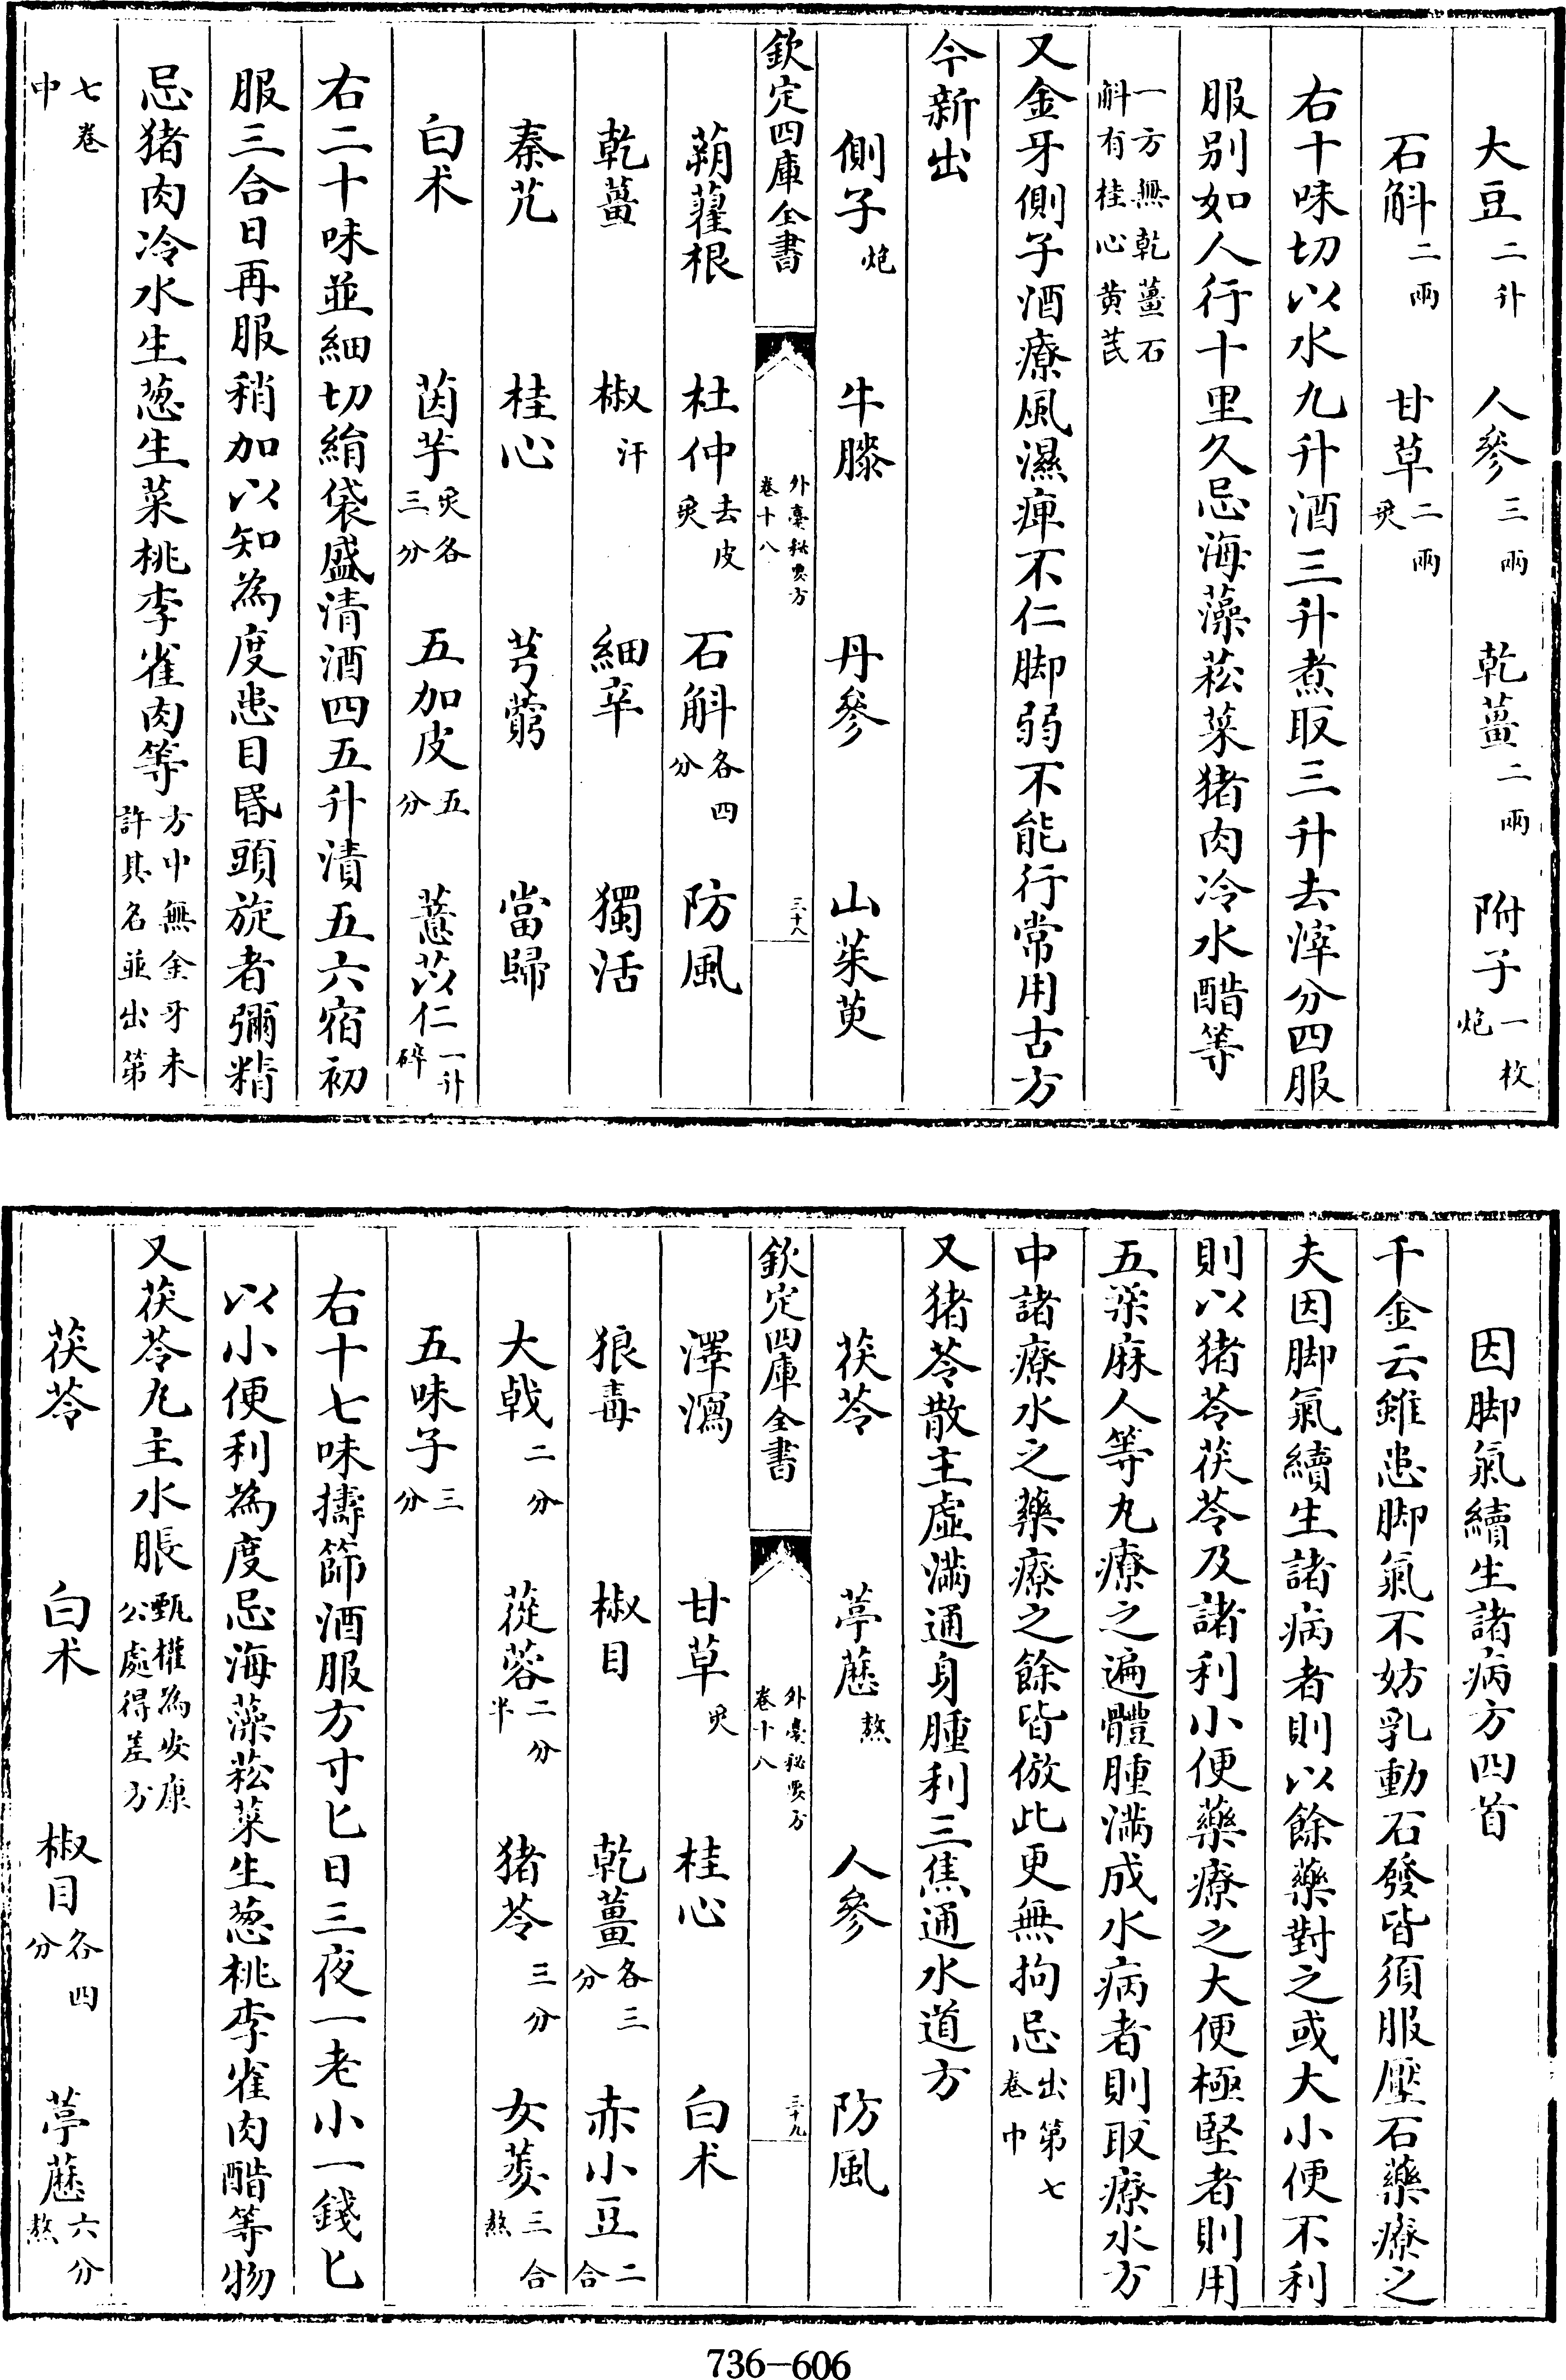 大豆二升　人參三兩　乾薑二兩　附子一枚炮
石斛二兩　甘草二兩炙
右十味切以水九升酒三升煮取三升去滓分四服
服别如人行十里久忌海藻菘菜猪肉冷水醋等
一方無乾薑石斛有桂心黄芪
又金牙側子酒療風濕痺不仁脚弱不能行常用古方
今新出
側子炮　牛膝　丹參　山茱萸
欽定四庫全書　外臺秘要方卷十八　三十八
蒴藋根　杜仲去皮炙　石斛各四分　防風
乾薑　椒汗　細辛　獨活
秦艽　桂心　芎藭　當歸
白术　茵芋炙各三分　五加皮五分　薏苡仁一升碎
右二十味並細切絹袋盛清酒四五升漬五六宿初
服三合日再服稍加以知為度患目昏頭旋者彌精
忌猪肉冷水生葱生菜桃李雀肉等方中無金牙未許其名並出第
七卷中
因脚氣續生諸病方四首
千金云雖患脚氣不妨乳動石發皆須服壓石藥療之
夫因脚氣續生諸病者則以餘藥對之或大小便不利
則以猪苓茯苓及諸利小便藥療之大便極堅者則用
五柔麻人等丸療之遍體腫滿成水病者則取療水方
中諸療水之藥療之餘皆倣此更無拘忌出第七卷中
又猪苓散主虛滿通身腫利三焦通水道方
茯苓　葶藶熬　人參　防風
欽定四庫全書　外臺秘要方卷十八　三十九
澤瀉　甘草炙　桂心　白术
狼毒　椒目　乾薑各三分　赤小豆二合
大戟二分　蓯蓉二分半　猪苓三分　女萎三合熬
五味子三分
右十七味擣篩酒服方寸匕日三夜一老小一錢匕
以小便利為度忌海藻菘菜生葱桃李雀肉醋等物
又茯苓丸主水脹甄權為安康公處得差方
茯苓　白术　椒目各四分　葶藶六分熬
736-606